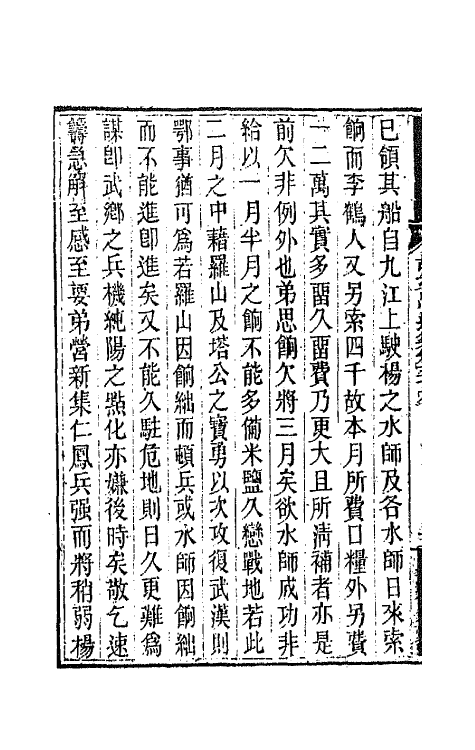 已領其船自九江上駛楊之水師及各水師日來索
餉而李鶴人又另索四千故本月所費口糧外另費
一二萬其實多畱久畱費乃更大且所淸補者亦是
前欠非例外也弟思餉欠將三月矣欲水師成功非
給以一月半月之餉不能多備米鹽久戀戰地若此
二月之中藉羅山及塔公之寶勇以次攻復武漢則
鄂事猶可爲若羅山因餉絀而頓兵或水師因餉絀
而不能進卽進矣又不能久駐危地則日久更難爲
謀卽武鄉之兵機純陽之點化亦嫌後時矣敬乞速
籌急解至感至要弟營新集仁鳳兵强而將稍弱楊